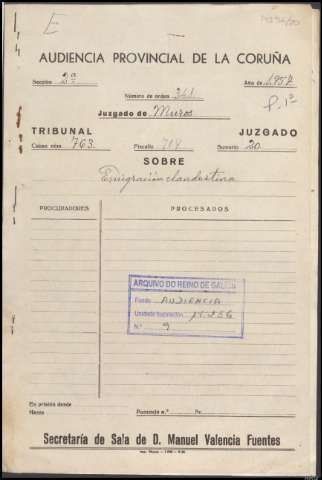 E
AUDIENCIA PROVINCIAL DE LA CORUÑA
Sección 2ª Año de 1954
Número de orden 361
Juzgado de Muros
P. 1ª
TRIBUNAL JUZGADO
Causa núm. 763 Fiscalía 714 Sumario 20
SOBRE
Emigración clandestina
PROCURADORES PROCESADOS
ARQUIVO DO REINO DE GALICIA
Fondo AUDIENCIA
Unidade Instalación
N.º 9
En prisión desde
Hasta Ponencia n.º Sr.
Secretaría de Sala de D. Manuel Valencia Fuentes